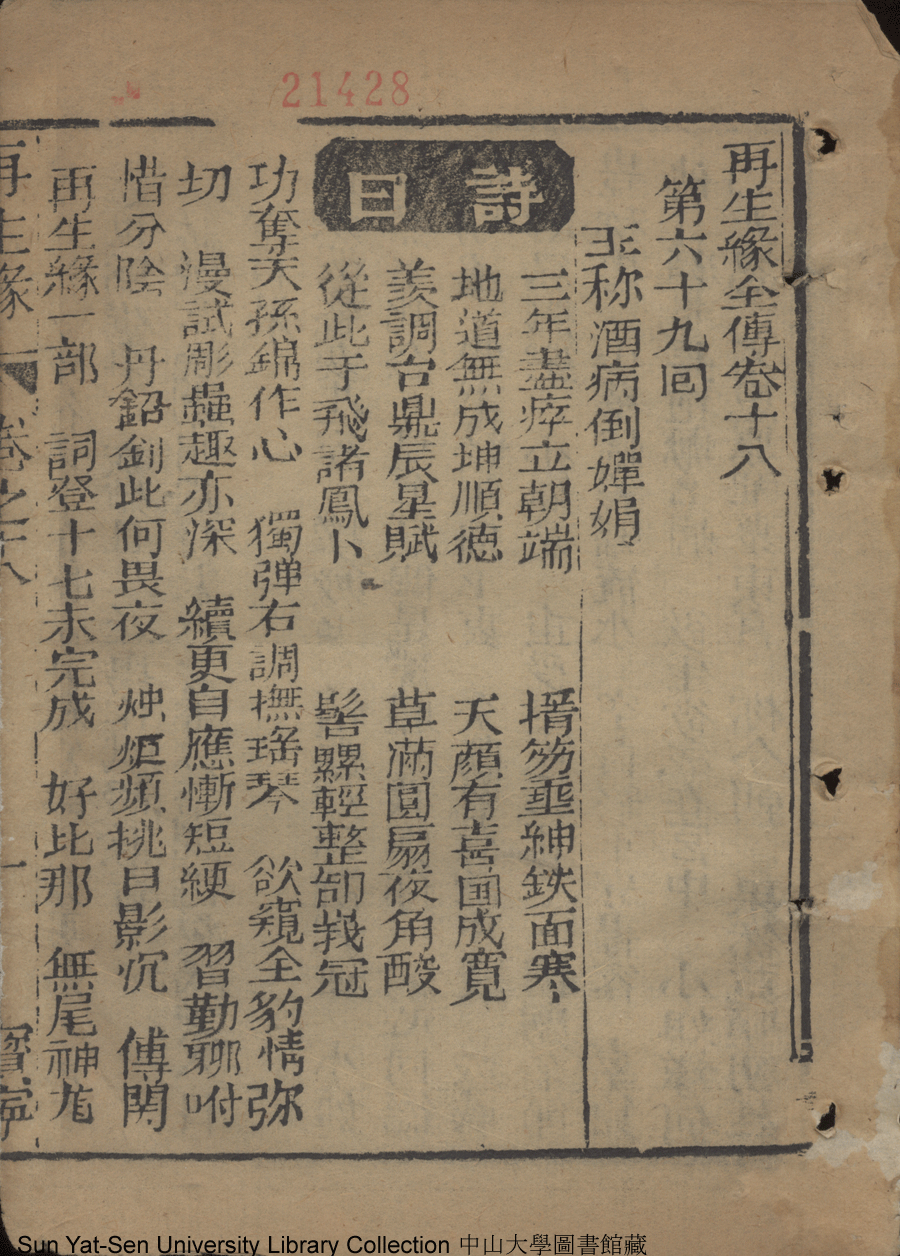 21428
再生緣全傳卷十八
第六十九回
王称酒病倒嬋娟
詩曰
三年盡瘁立朝端 搢笏垂紳鉄面寒
地道無成坤順德 天顏有喜国成寬
羨調台鼎辰星賦 草滿圓扇夜角酸
從此于飛諸鳳卜 髻騾輕整卸峩冠
功奪天孫錦作心 獨弹右調撫瑶琴 欲窺全豹情弥
切 漫試彫蟲趣亦深 續更自應慚短綆 習勤聊咐
惜分陰 丹鉛釗此何畏夜 烛炬頻挑日影沉 傳閱
再生緣一部 詞登十七未完成 好比那 無尾神龙
再生緣 卷之十八 一
Sun Yat-Sen University Library Collection 中山大學圖書館藏